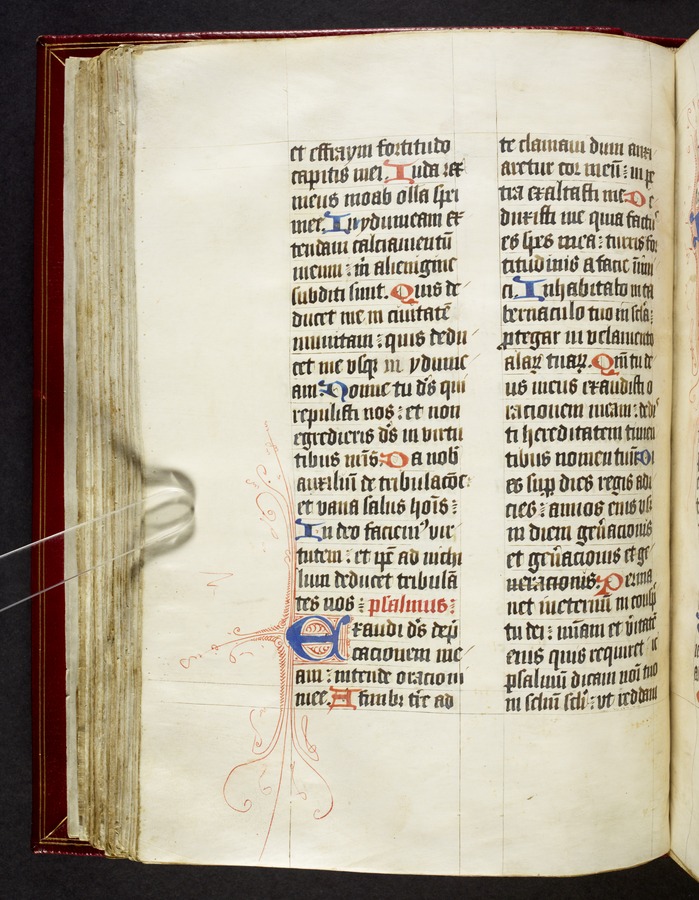 et effraym fortitudo
capitis mei. Iuda rex
meus moab olla spei
mee. In ydumeam ex
tendam calciamentū
meum : m̄ alienigine
subditi sunt. Quis de
ducet me in ciuitatē
munitam : quis dedu
cet me vsqꝫ in ydume
am : Nonne tu ds̄ qui
repulisti nos : et non
egredieris ds̄ in virtu
tibus nr̄is : Da nob̄
auxiliū de tribulacōe :
et vana salus hoīs :
In deo faciem᷒ vir
tutem : et ip̄e ad nichi
lum deducet tribulā
tes nos : psalmus :
Exaudi ds̄ dep̄
cacionem me
am : intende oracioni
mee. A finibꝫ tr̄e ad
te clamaui dum anxi
aretur cor meū : in pe
tra exaltasti me. De
duxisti me quia factꝰ
es spes mea : turris for
titudinis a facie inimi
ci. Inhabitabo in ta
bernaculo tuo in scl̄a :
ꝓtegar in velamento
alaꝝ tuaꝝ. Qm̄ tu de
us meus exaudisti o
racionem meam : dedi
ti hereditatem timen
tibus nomen tuū. Di
es suꝑ dies regis adi
cies : annos eius vsqꝫ
in diem gen̄acionis
et gen̄acionis et ge
neracionis : Perma
net in eternū in conspū
tu dei : mīam et v̄itatē
eius quis requiret ic
psalmū dicam noī tuo
in sclm̄ scl̄i : vt reddam